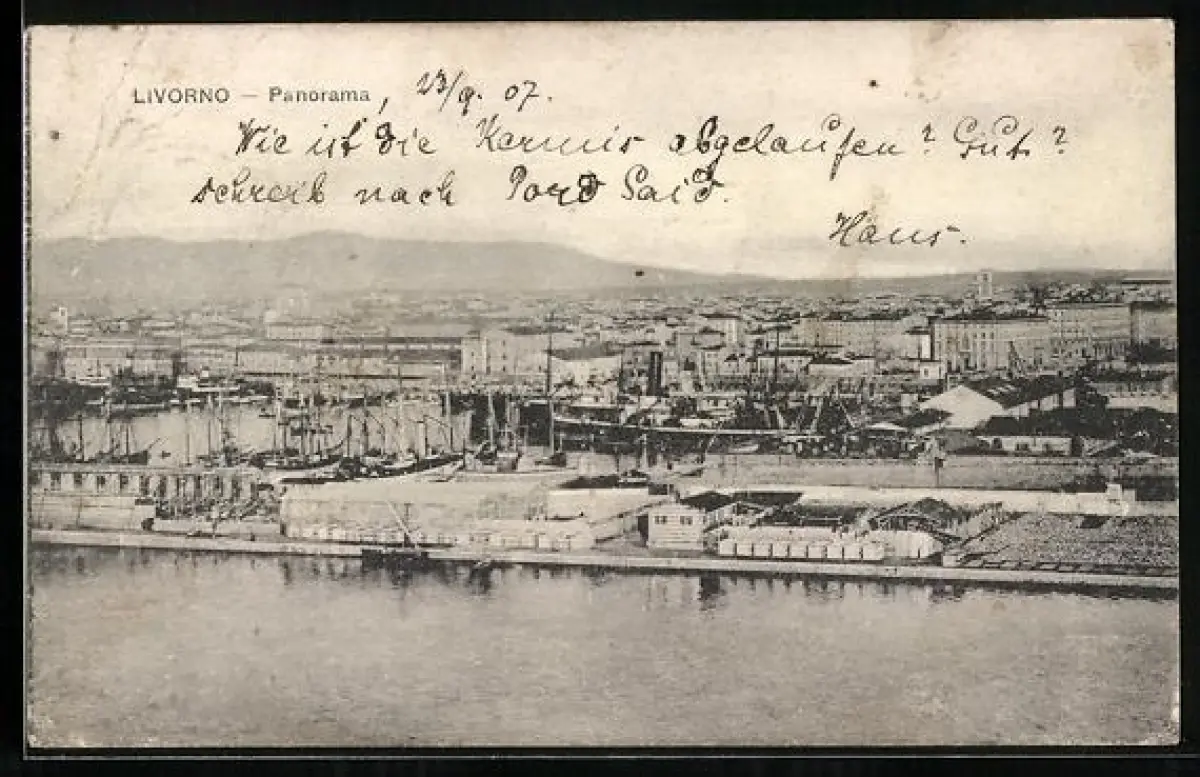 LIVORNO — Panorama, 23/9. 07.
Wie ist die Kermis abgelaufen? Gut?
schreib nach Pord Said.
Hans.